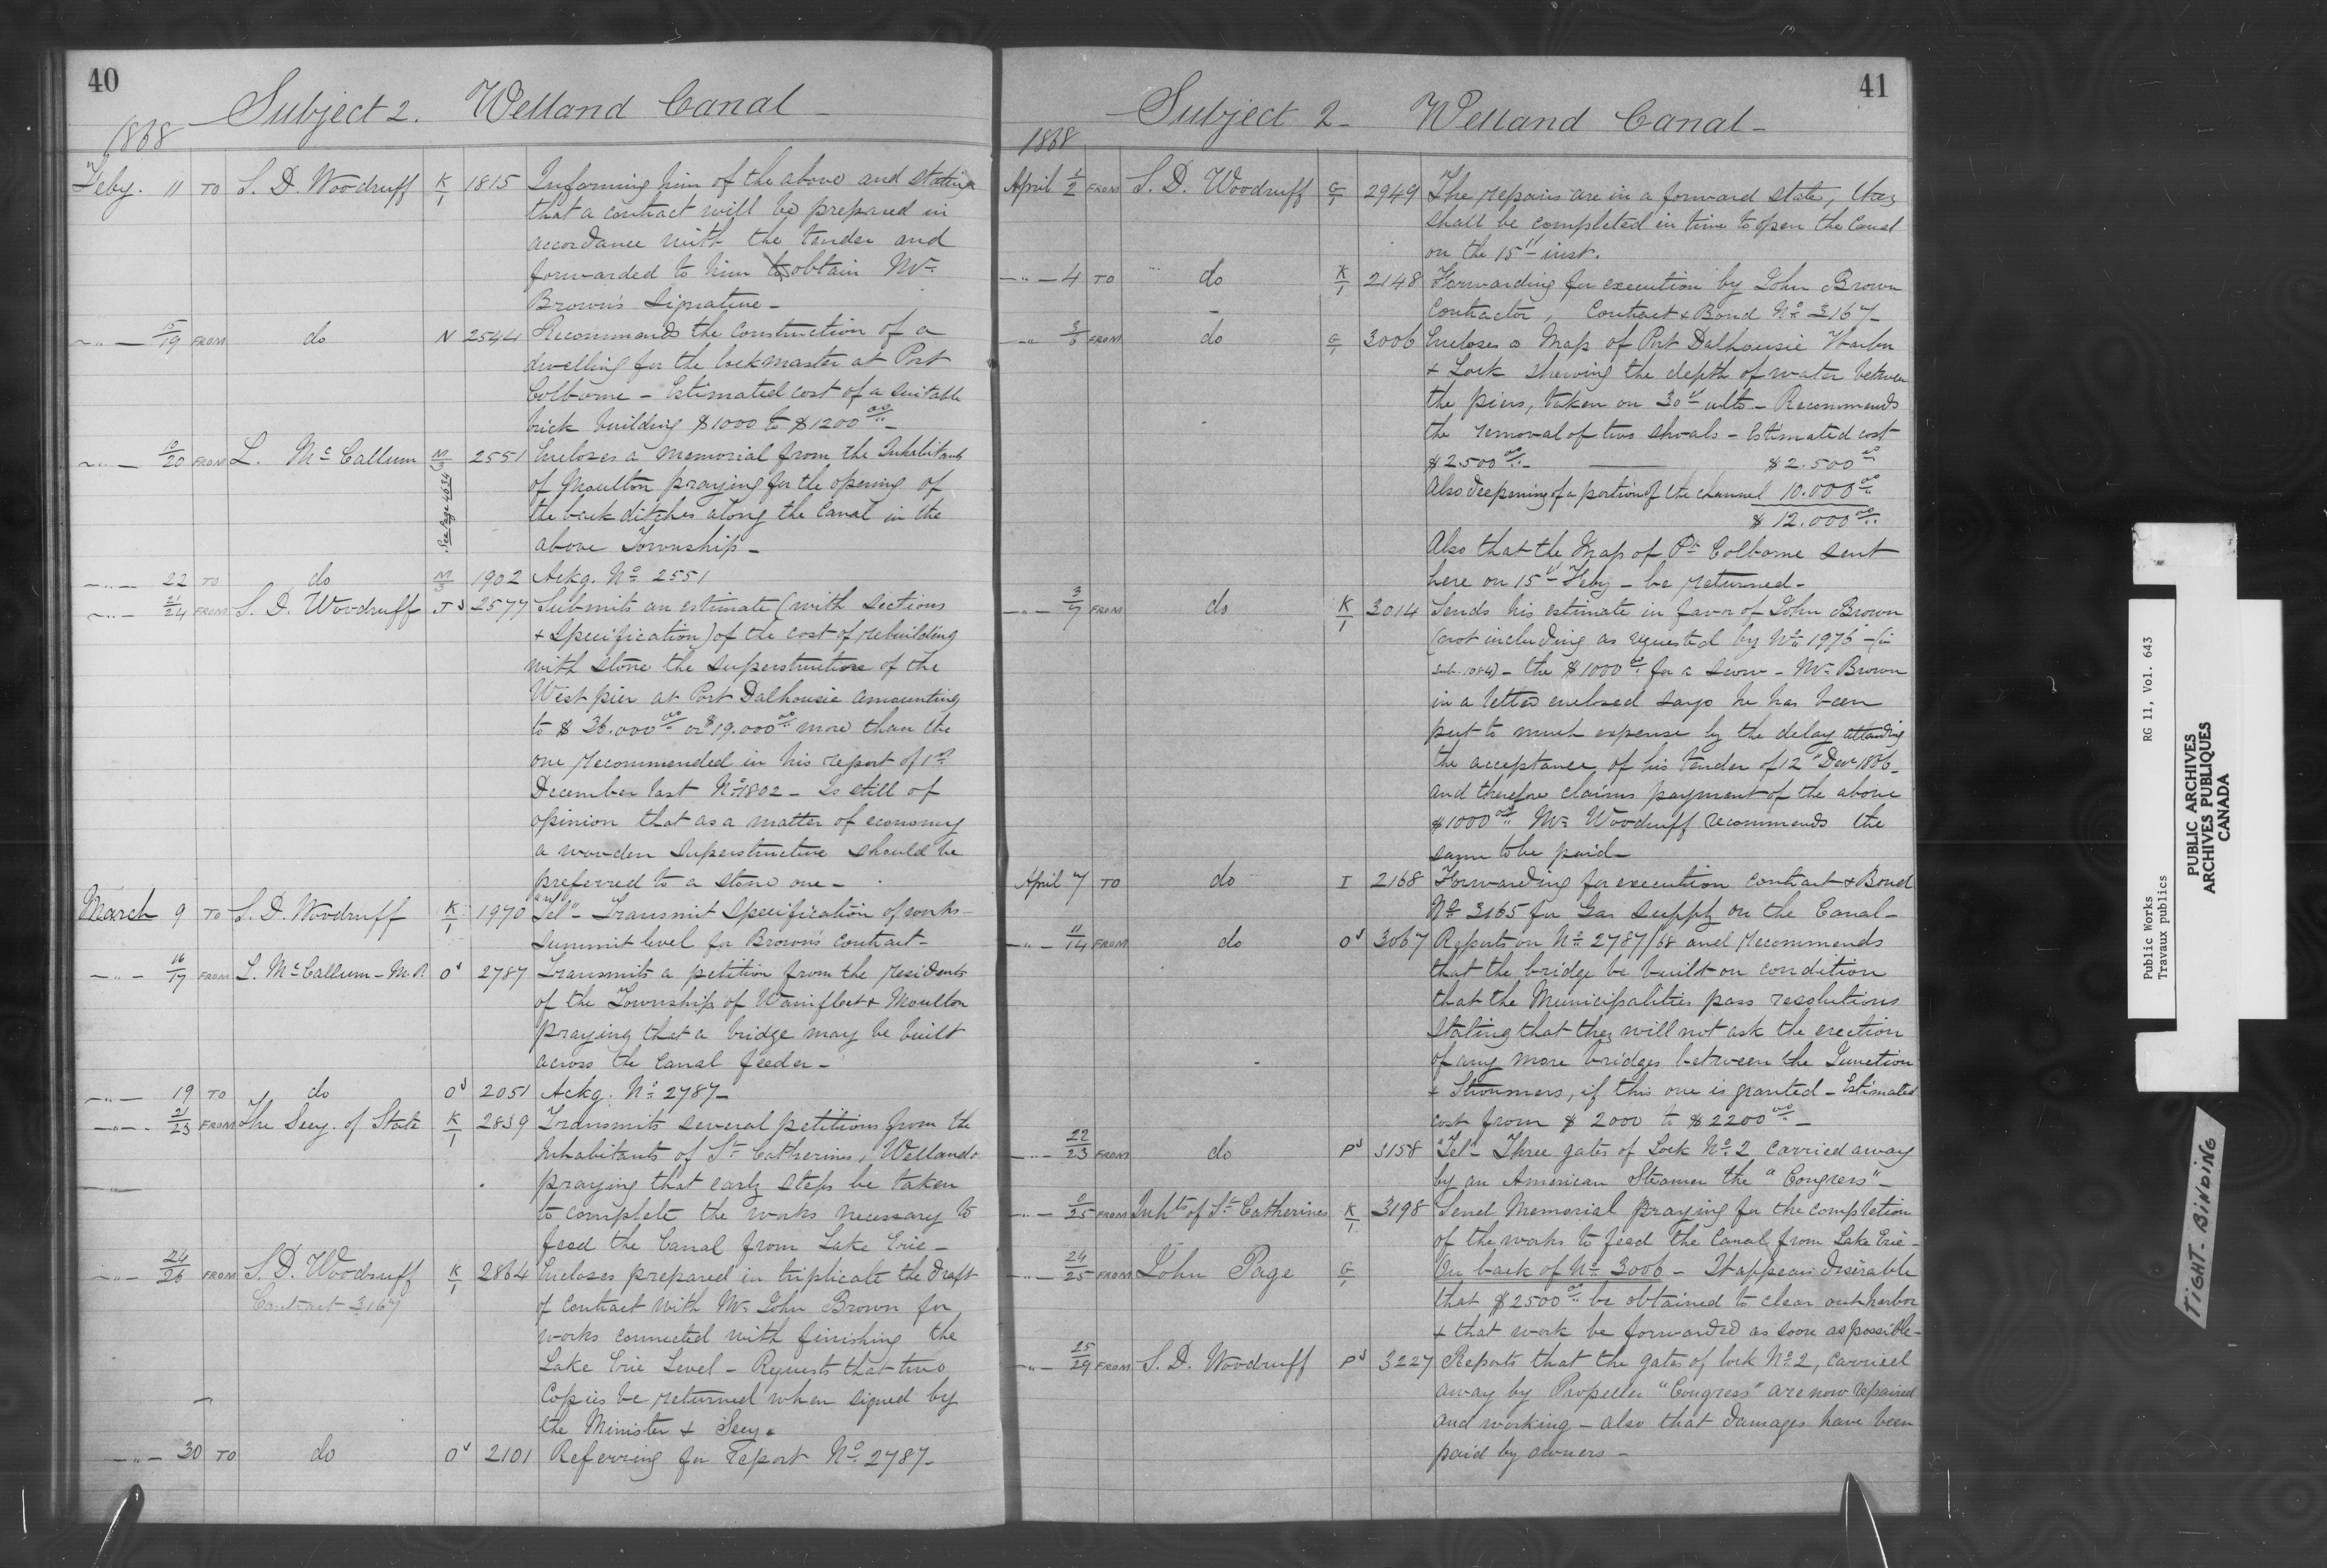 40
Subject 2. Welland Canal -
1868
Feby. 11 TO S. D. Woodruff K/1 1815 Informing him of the above and stating
that a contract will be prepared in
accordance with the tender and
forwarded to him to obtain Mr.
Brown's signature -
" 15/19 FROM do N 2544 Recommends the construction of a
dwelling for the lockmaster at Port
Colborne - Estimated cost of a suitable
brick building $1000 to $1200 00/..
" 10/20 FROM L. McCallum M/3 2551 Encloses a memorial from the Inhabitants
See page 4634
of Moulton praying for the opening of
the back ditches along the Canal in the
above Township -
" 22 TO do M/3 1902 Ackg. No. 2551
" 21/24 FROM S. D. Woodruff J 2577 Submits an estimate (with sections
+ specification) of the cost of rebuilding
with stone the superstructure of the
West pier at Port Dalhousie amounting
to $ 36.000 00/.. or $19.000 00/.. more than the
one recommended in his report of 1st
December last No. 1802 - Is still of
opinion that as a matter of economy
a wooden superstructure should be
preferred to a stone one -
March 9 TO S. D. Woodruff K/1 1970 "Tel" - Transmit specification of works -
summit level for Brown's contract -
" 16/17 FROM L. McCallum - M.P. O 2787 Transmits a petition from the residents
of the Township of Wainfleet + Moulton
praying that a bridge may be built
across the Canal feeder -
" 19 TO do O 2051 Ackg. No. 2787 -
" 21/23 FROM The Secy. of State K/1 2839 Transmits several petitions from the
Inhabitants of St Catherines, Welland
praying that early steps be taken
to complete the works necessary to
feed the Canal from Lake Erie -
" 24/26 FROM S. D. Woodruff K/1 2864 Encloses prepared in triplicate the draft
Contract 3167
of contract with Mr. John Brown for
works connected with finishing the
Lake Erie Level - Requests that two
copies be returned when signed by
the Minister + Secy.
" 30 TO do O 2101 Referring for report No. 2787 -
41
Subject 2 - Welland Canal -
1868
April 1/2 FROM S. D. Woodruff G/1 2949 The repairs are in a forward state, they
shall be completed in time to open the Canal
on the 15th inst.
" 4 TO " do K/1 2148 Forwarding for execution by John Brown
Contractor, Contract + Bond No. 3167 -
" 3/6 FROM do G/1 3006 Encloses a Map of Port Dalhousie Harbor
+ Lock shewing the depth of water between
the piers, taken on 30th ulto - Recommends
the removal of two shoals - Estimated cost
$2500 00/.. - $2.500 00
Also deepening of a portion of the channel 10.000 00/..
$ 12.000 00/..
Also that the Map of Pt Colborne sent
here on 15th Feby - be returned -
" 3/7 FROM do K/1 3014 Sends his estimate in favor of John Brown
(not including as requested by No. 1976 - (in
sub. - the $1000 00/.. for a scow - Mr. Brown
in a letter enclosed says he has been
put to much expense by the delay attending
the acceptance of his tender of 12th Decr 1866 -
and therefore claims payment of the above
$1000 00/.. Mr. Woodruff recommends the
same to be paid -
April 7 TO do I 2168 Forwarding for execution contract + Bond
No. 3165 for Gas supply on the Canal -
" 11/14 FROM do O 3067 Reports on No. 2787/68 and recommends
that the bridge be built on condition
that the Municipalities pass resolutions
stating that they will not ask the erection
of any more bridges between the Junction
+ , if this one is granted - Estimated
cost from $ 2000 to $2200 00/.. -
" 22/23 FROM do P 3158 "Tel" - Three gates of Lock No. 2 carried away
by an American Steamer the "Congress" -
" /25 FROM Inhts of St Catherines K/1 3198 Send Memorial praying for the completion
of the works to feed the Canal from Lake Erie -
" 24/25 FROM John Page G/1 On back of No. 3006 - It appears desirable
that $2500 00/.. be obtained to clear out harbor
+ that work be forwarded as soon as possible -
" 25/29 FROM S. D. Woodruff P 3227 Reports that the gates of lock No. 2, carried
away by Propeller "Congress" are now repaired
and working - also that damages have been
paid by owners -
Public Works
Travaux publics
RG 11, Vol. 643
PUBLIC ARCHIVES
ARCHIVES PUBLIQUES
CANADA
TIGHT BINDING